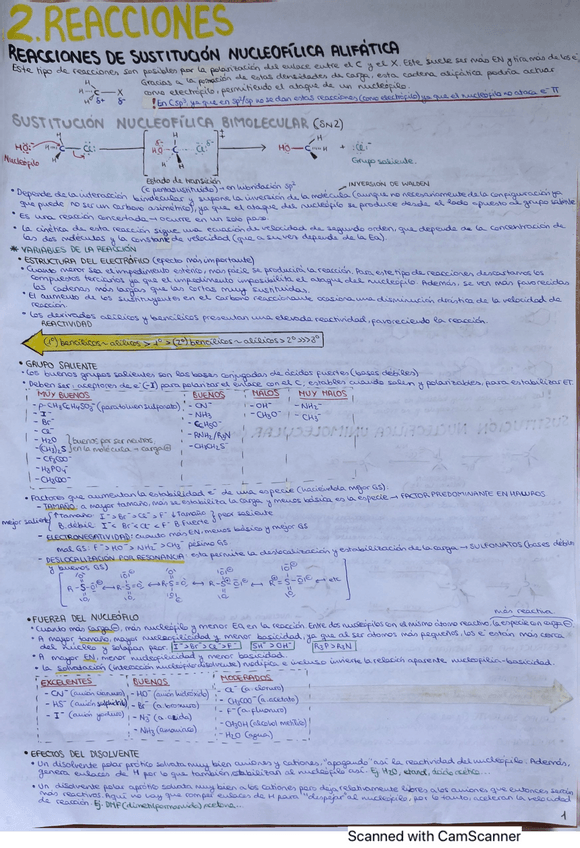 2. REACCIONES
REACCIONES DE SUSTITUCIÓN NUCLEOFÍLICA ALIFÁTICA
Este tipo de reacciones son posibles por la polarización del enlace entre el C y el X. Este suele ser más EN y tira más de los e⁻.
Gracias a la formación de estas densidades de carga, esta cadena alifática podría actuar
como electrófilo, permitiendo el ataque de un nucleófilo.
! En Csp³, ya que en sp²/sp no se dan estas reacciones (como electrófilo) ya que el nucleófilo no ataca e⁻ π
H C X
H δ+ δ-
SUSTITUCIÓN NUCLEOFÍLICA BIMOLECULAR (SN2)
Nucleófilo
Estado de transición
(C pentasustituido) → en hibridación sp²
Grupo saliente
INVERSIÓN DE WALDEN
• Depende de la interacción bimolecular y supone la inversión de la molécula (aunque no necesariamente de la configuración ya
que puede no ser un carbono asimétrico), ya que el ataque del nucleófilo se produce desde el lado opuesto al grupo saliente
• Es una reacción concertada → ocurre en un solo paso.
• La cinética de esta reacción sigue una ecuación de velocidad de segundo orden, que depende de la concentración de
las dos moléculas y la constante de velocidad (que a su vez depende de la Ea).
* VARIABLES DE LA REACCIÓN
• ESTRUCTURA DEL ELECTRÓFILO (efecto más importante)
• Cuanto menor sea el impedimento estérico, más fácil se producirá la reacción. Para este tipo de reacciones descartamos los
compuestos terciarios ya que el impedimento imposibilita el ataque del nucleófilo. Además, se ven más favorecidas
las cadenas más largas que las cortas muy sustituidas.
• El aumento de los sustituyentes en el carbono reaccionante ocasiona una disminución drástica de la velocidad de
reacción.
• Los derivados alílicos y bencílicos presentan una elevada reactividad, favoreciendo la reacción.
REACTIVIDAD
(1º) bencílicos ~ alílicos > 1º > (2º) bencílicos ~ alílicos > 2º >>> 3º
• GRUPO SALIENTE
• Los buenos grupos salientes son las bases conjugadas de ácidos fuertes (bases débiles)
• Deben ser: aceptores de e⁻ (-I) para polarizar el enlace con el C, estables cuando salen y polarizables, para estabilizar ET.
MUY BUENOS BUENOS MALOS MUY MALOS
- p-CH₃C₆H₄SO₃⁻ (para toluensulfonato) - CN⁻ - OH⁻ - NH₂⁻
- I⁻ - NH₃ - CH₃O⁻ - CH₃⁻
- Br⁻ - C₆H₅O⁻
- Cl⁻ - RNH₂/R₃N
- H₂O - CH₃CH₂S⁻
- (CH₃)₂S buenos por ser neutros en la molécula → carga ⊕
- CF₃COO⁻
- H₂PO₄⁻
- CH₃COO⁻
• Factores que aumentan la estabilidad e⁻ de una especie (haciéndola mejor GS):
- TAMAÑO: a mayor tamaño, más se estabiliza la carga y menos básica es la especie → FACTOR PREDOMINANTE EN HALUROS
mejor saliente
↑ tamaño: I⁻ > Br⁻ > Cl⁻ > F⁻ ↓ tamaño } peor saliente
B. débil: I⁻ < Br⁻ < Cl⁻ < F⁻ B. fuerte
- ELECTRONEGATIVIDAD: cuanto más EN, menos básico y mejor GS
mal GS: F⁻ > HO⁻ > NH₂⁻ > CH₃⁻ pésimo GS
- DESLOCALIZACIÓN POR RESONANCIA: esta permite la deslocalización y estabilización de la carga → SULFONATOS (bases débiles
y buenos GS)
↔ etc
• FUERZA DEL NUCLEÓFILO
más reactiva
• Cuanto más carga ⊖, más nucleófilo y menor Ea en la reacción. Entre dos nucleófilos con el mismo átomo reactivo, la especie con carga ⊖.
• A mayor tamaño, mayor nucleofilicidad y menor basicidad, ya que al ser átomos más pequeños, los e⁻ están más cerca
del núcleo y solapan peor. I⁻ > Br⁻ > Cl⁻ > F⁻ SH⁻ > OH⁻ R₃P > R₃N
• A mayor EN, menor nucleofilicidad y menor basicidad.
• La solvatación (interacción nucleófilo-disolvente) modifica e incluso invierte la relación aparente nucleofilia-basicidad.
EXCELENTES BUENOS MODERADOS
- CN⁻ (anión cianuro) - HO⁻ (anión hidróxido) - Cl⁻ (a. cloruro)
- HS⁻ (anión sulfhidrilo) - Br⁻ (a. bromuro) - CH₃COO⁻ (a. acetato)
- I⁻ (anión yoduro) - N₃⁻ (a. azida) - F⁻ (a. fluoruro)
- NH₃ (amoniaco) - CH₃OH (alcohol metílico)
- H₂O (agua)
• EFECTOS DEL DISOLVENTE
• Un disolvente polar prótico solvata muy bien aniones y cationes, "apagando" así la reactividad del nucleófilo. Además,
genera enlaces de H por lo que también estabilizan al nucleófilo así. Ej H₂O, etanol, ácido acético...
• Un disolvente polar aprótico solvata muy bien a los cationes pero deja relativamente libres a los aniones que entonces serán
más reactivos. Aquí no hay que romper enlaces de H para "despejar" al nucleófilo, por lo tanto, aceleran la velocidad
de reacción. Ej. DMF (dimetilformamida), acetona...
1
Scanned with CamScanner